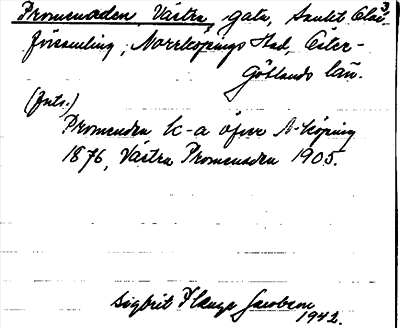 Promenaden, Västra, gata, Sankt Olai
församling, Norrköpings stad, Öster-
götlands län.
(Ints.)
Promenaden k-a öfver N-köping
1876, Västra Promenaden 1905.
Sigbrit Plænge Jacobson
1942.